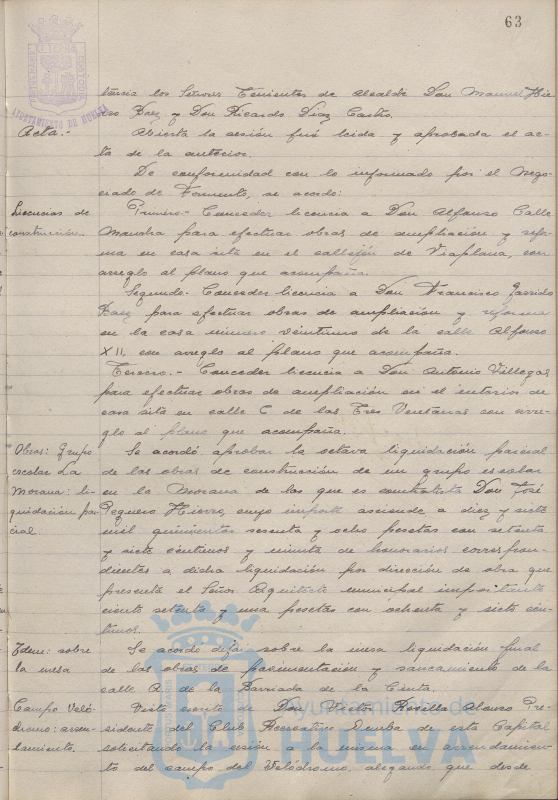 63
tencia los Señores Tenientes de Alcalde Don Manuel Hie-
rro Baez y Don Ricardo Diaz Castro.
Acta.-
Abierta la sesión fué leida y aprobada el ac-
ta de la anterior.
De conformidad con lo informado por el Nego-
ciado de Fomento, se acordo:
Licencias de
construcción.
Primero- Conceder licencia a Don Alfonso Calle
Mancha para efectuar obras de ampliación y refor-
ma en casa sita en el callejón de Viaplana, con
arreglo al plano que acompaña.
Segundo- Conceder licencia a Don Francisco Garrido
Baez para efectuar obras de ampliación y reforma
en la casa número veintiuno de la calle Alfonso
XII, con arreglo al plano que acompaña.
Tercero.- Conceder licencia a Don Antonio Villegas
para efectuar obras de ampliación en el interior de
casa sita en calle C de las Tres Ventanas con arre-
glo al plano que acompaña.
Obras: Grupo
escolar La
Morana: li-
quidación par-
cial.
Se acordó aprobar la octava liquidación parcial
de las obras de construcción de un grupo escolar
en la Morana de las que es contratista Don José
Peguero Hierro, cuyo importe asciende a diez y siete
mil quinientas sesenta y ocho pesetas con setenta
y siete centimos y minuta de honorarios correspon-
dientes a dicha liquidación por dirección de obra que
presenta el Señor Arquitecto municipal importante
ciento setenta y una pesetas con ochenta y siete cén-
timos.
Idem: sobre
la mesa
Se acordó dejar sobre la mesa liquidación final
de las obras de pavimentación y saneamiento de la
calle A. de la Barriada de la Cinta.
Campo Veló-
dromo: arren-
damiento.
Visto escrito de Don Victor Revilla Alonso Pre-
sidente del Club Recreativo Onuba de esta Capital
solicitando la cesión a la misma en arrendamien-
to del campo del Velódromo, alegando que desde
AYUNTAMIENTO DE HUELVA
Ayuntamiento de
HUELVA